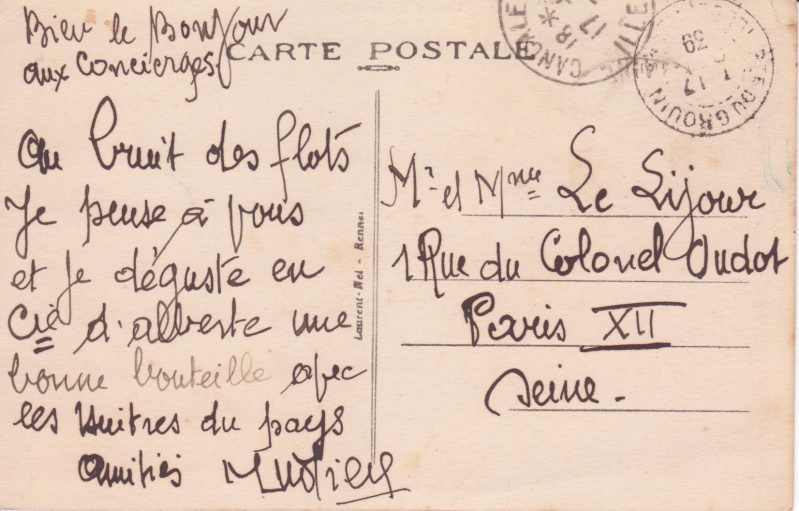 Bien le Bonjour
aux Concierges
CARTE POSTALE
au bruit des flots
Je pense à vous
et je déguste en
Cie d'alberte une
bonne bouteille avec
les huitres du pays
amitiés
Laurent-Nel - Rennes
Mr et Mme Le Lijour
1 Rue du Colonel Oudot
Paris XII
Seine.
CANCALE
18*
17
VILLE
17
39
PTE DU GROUIN